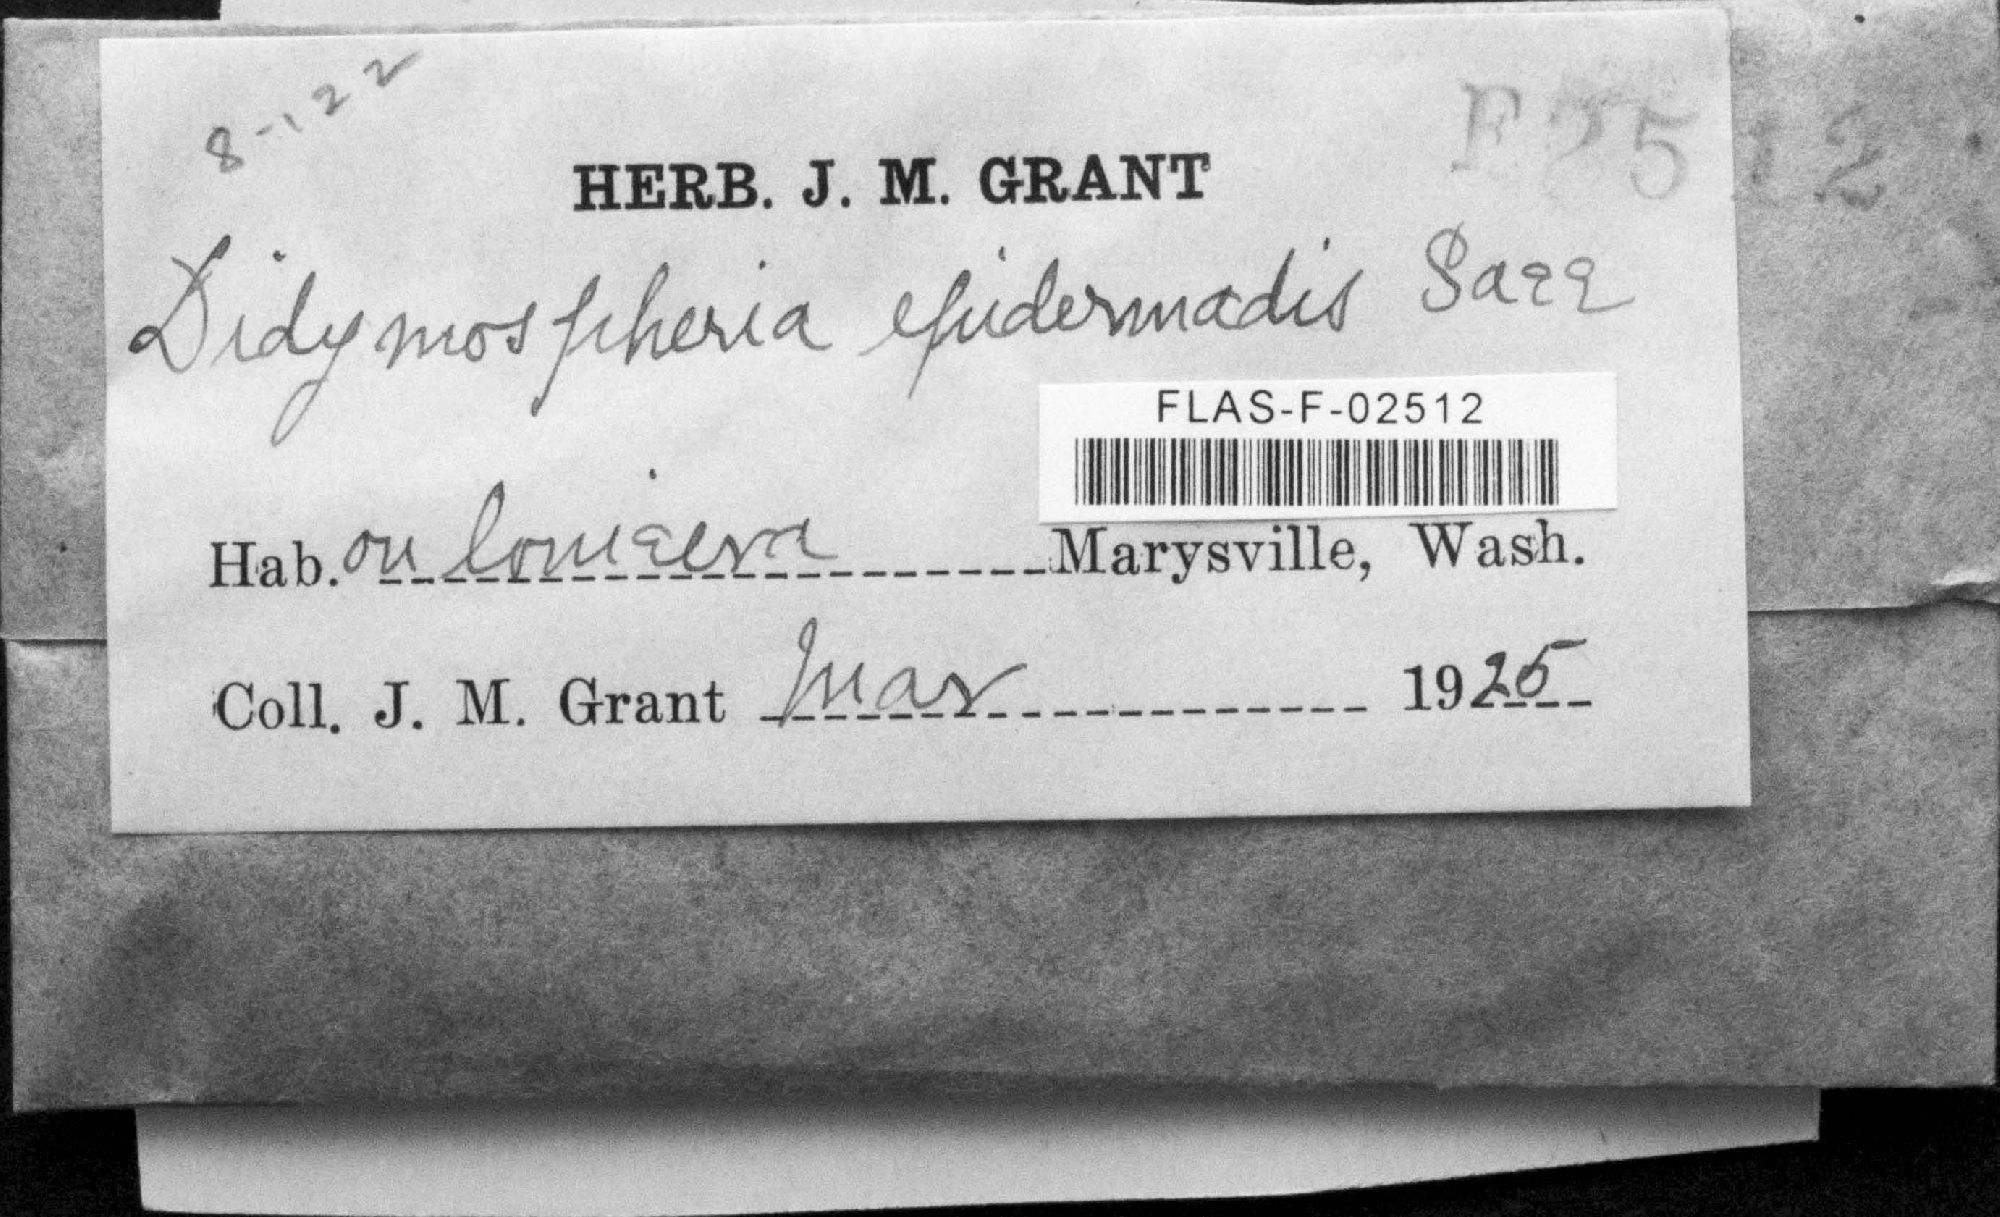 8-122
F2512
HERB. J. M. GRANT
Didymospheria epidermadis Sacc
FLAS-F-02512
Hab. on lonicera Marysville, Wash.
Coll. J. M. Grant Mar 1925